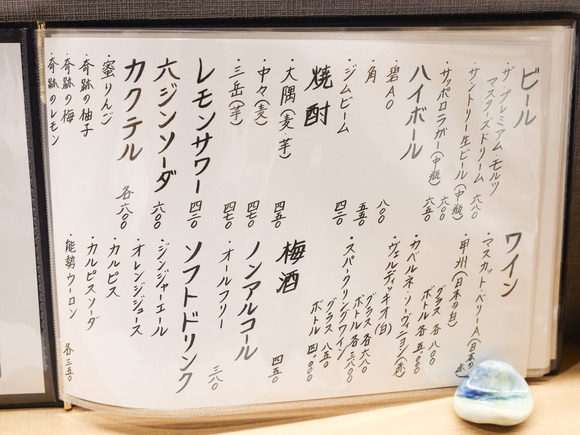 ビール
・ザ・プレミアム・モルツ
マスターズドリーム 六八〇
・サントリー生ビール(中瓶) 六〇〇
・サッポロラガー(中瓶) 六五〇
ハイボール
・碧Ao 八〇〇
・角 五五〇
・ジムビーム 四五〇
焼酎
・大隅(麦・芋) 四五〇
・中々(麦) 四七〇
・三岳(芋) 四七〇
レモンサワー 四五〇
六ジンソーダ 六〇〇
カクテル 各六〇〇
・蜜りんご
・奇跡の柚子
・奇跡の梅
・奇跡のレモン
ワイン
・マスカット・ベリーA(日本の赤)
・甲州(日本の白)
グラス 各 八〇〇
ボトル 各 五、〇〇〇
・カベルネ・ソーヴィニヨン(赤)
・ヴェルディキオ(白)
グラス 各 六八〇
ボトル 各 三、八〇〇
・スパークリングワイン
グラス 八五〇
ボトル 四、〇〇〇
梅酒 四五〇
ノンアルコール
・オールフリー 三八〇
ソフトドリンク
・ジンジャーエール
・オレンジジュース
・カルピス
・カルピスソーダ
・能勢ウーロン 各三五〇